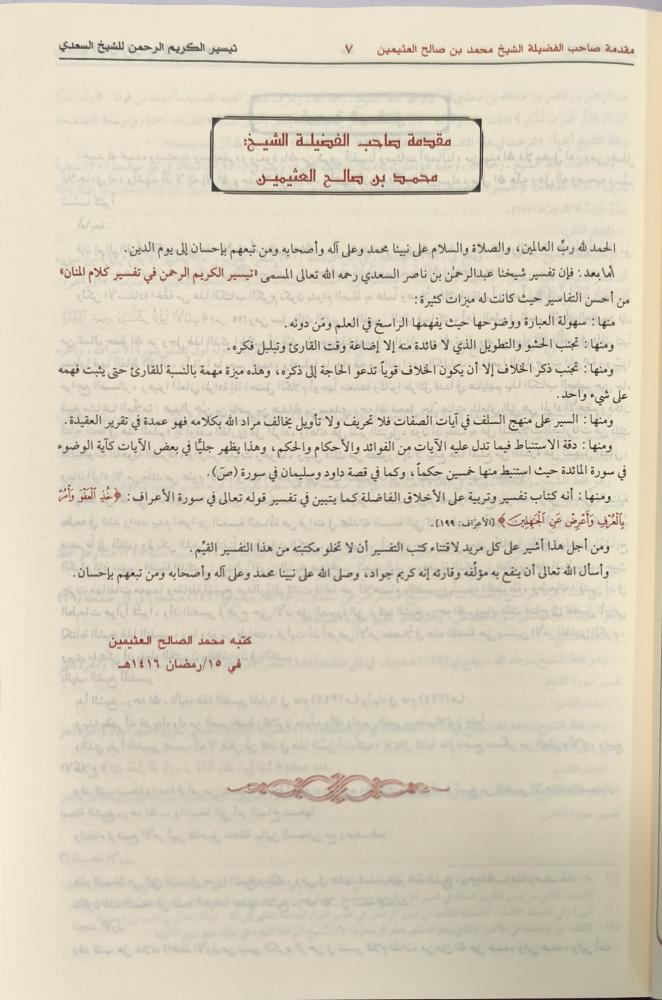 مقدمة صاحب الفضيلة الشيخ محمد بن صالح العثيمين ٧ تيسير الكريم الرحمن للشيخ السعدي
مقدمة صاحب الفضيلة الشيخ:
محمد بن صالح العثيمين
الحمد لله ربِّ العالمين، والصلاة والسلام على نبينا محمد وعلى آله وأصحابه ومن تبعهم بإحسان إلى يوم الدين.
أما بعد: فإن تفسير شيخنا عبدالرحمٰن بن ناصر السعدي رحمه الله تعالى المسمى «تيسير الكريم الرحمن في تفسير كلام المنان»
من أحسن التفاسير حيث كانت له ميزات كثيرة:
منها: سهولة العبارة ووضوحها حيث يفهمها الراسخ في العلم ومَن دونه.
ومنها: تجنب الحشو والتطويل الذي لا فائدة منه إلا إضاعة وقت القارئ وتبلبل فكره.
ومنها: تجنب ذكر الخلاف إلا أن يكون الخلاف قوياً تدعو الحاجة إلى ذكره، وهذه ميزة مهمة بالنسبة للقارئ حتى يثبت فهمه
على شيء واحد.
ومنها: السير على منهج السلف في آيات الصفات فلا تحريف ولا تأويل يخالف مراد الله بكلامه فهو عمدة في تقرير العقيدة.
ومنها: دقة الاستنباط فيما تدل عليه الآيات من الفوائد والأحكام والحكم، وهذا يظهر جليًّا في بعض الآيات كآية الوضوء
في سورة المائدة حيث استنبط منها خمسين حكماً، وكما في قصة داود وسليمان في سورة (صّ).
ومنها: أنه كتاب تفسير وتربية على الأخلاق الفاضلة كما يتبين في تفسير قوله تعالى في سورة الأعراف: ﴿خُذِ ٱلْعَفْوَ وَأْمُرْ
بِٱلْعُرْفِ وَأَعْرِضْ عَنِ ٱلْجَٰهِلِينَ﴾ [الأعراف: ١٩٩].
ومن أجل هذا أشير على كل مريد لاقتناء كتب التفسير أن لا تخلو مكتبته من هذا التفسير القيِّم.
وأسأل الله تعالى أن ينفع به مؤلّفه وقارئه إنه كريم جواد، وصلى الله على نبينا محمد وعلى آله وأصحابه ومن تبعهم بإحسان.
كتبه محمد الصالح العثيمين
في ١٥/رمضان ١٤١٦هـ